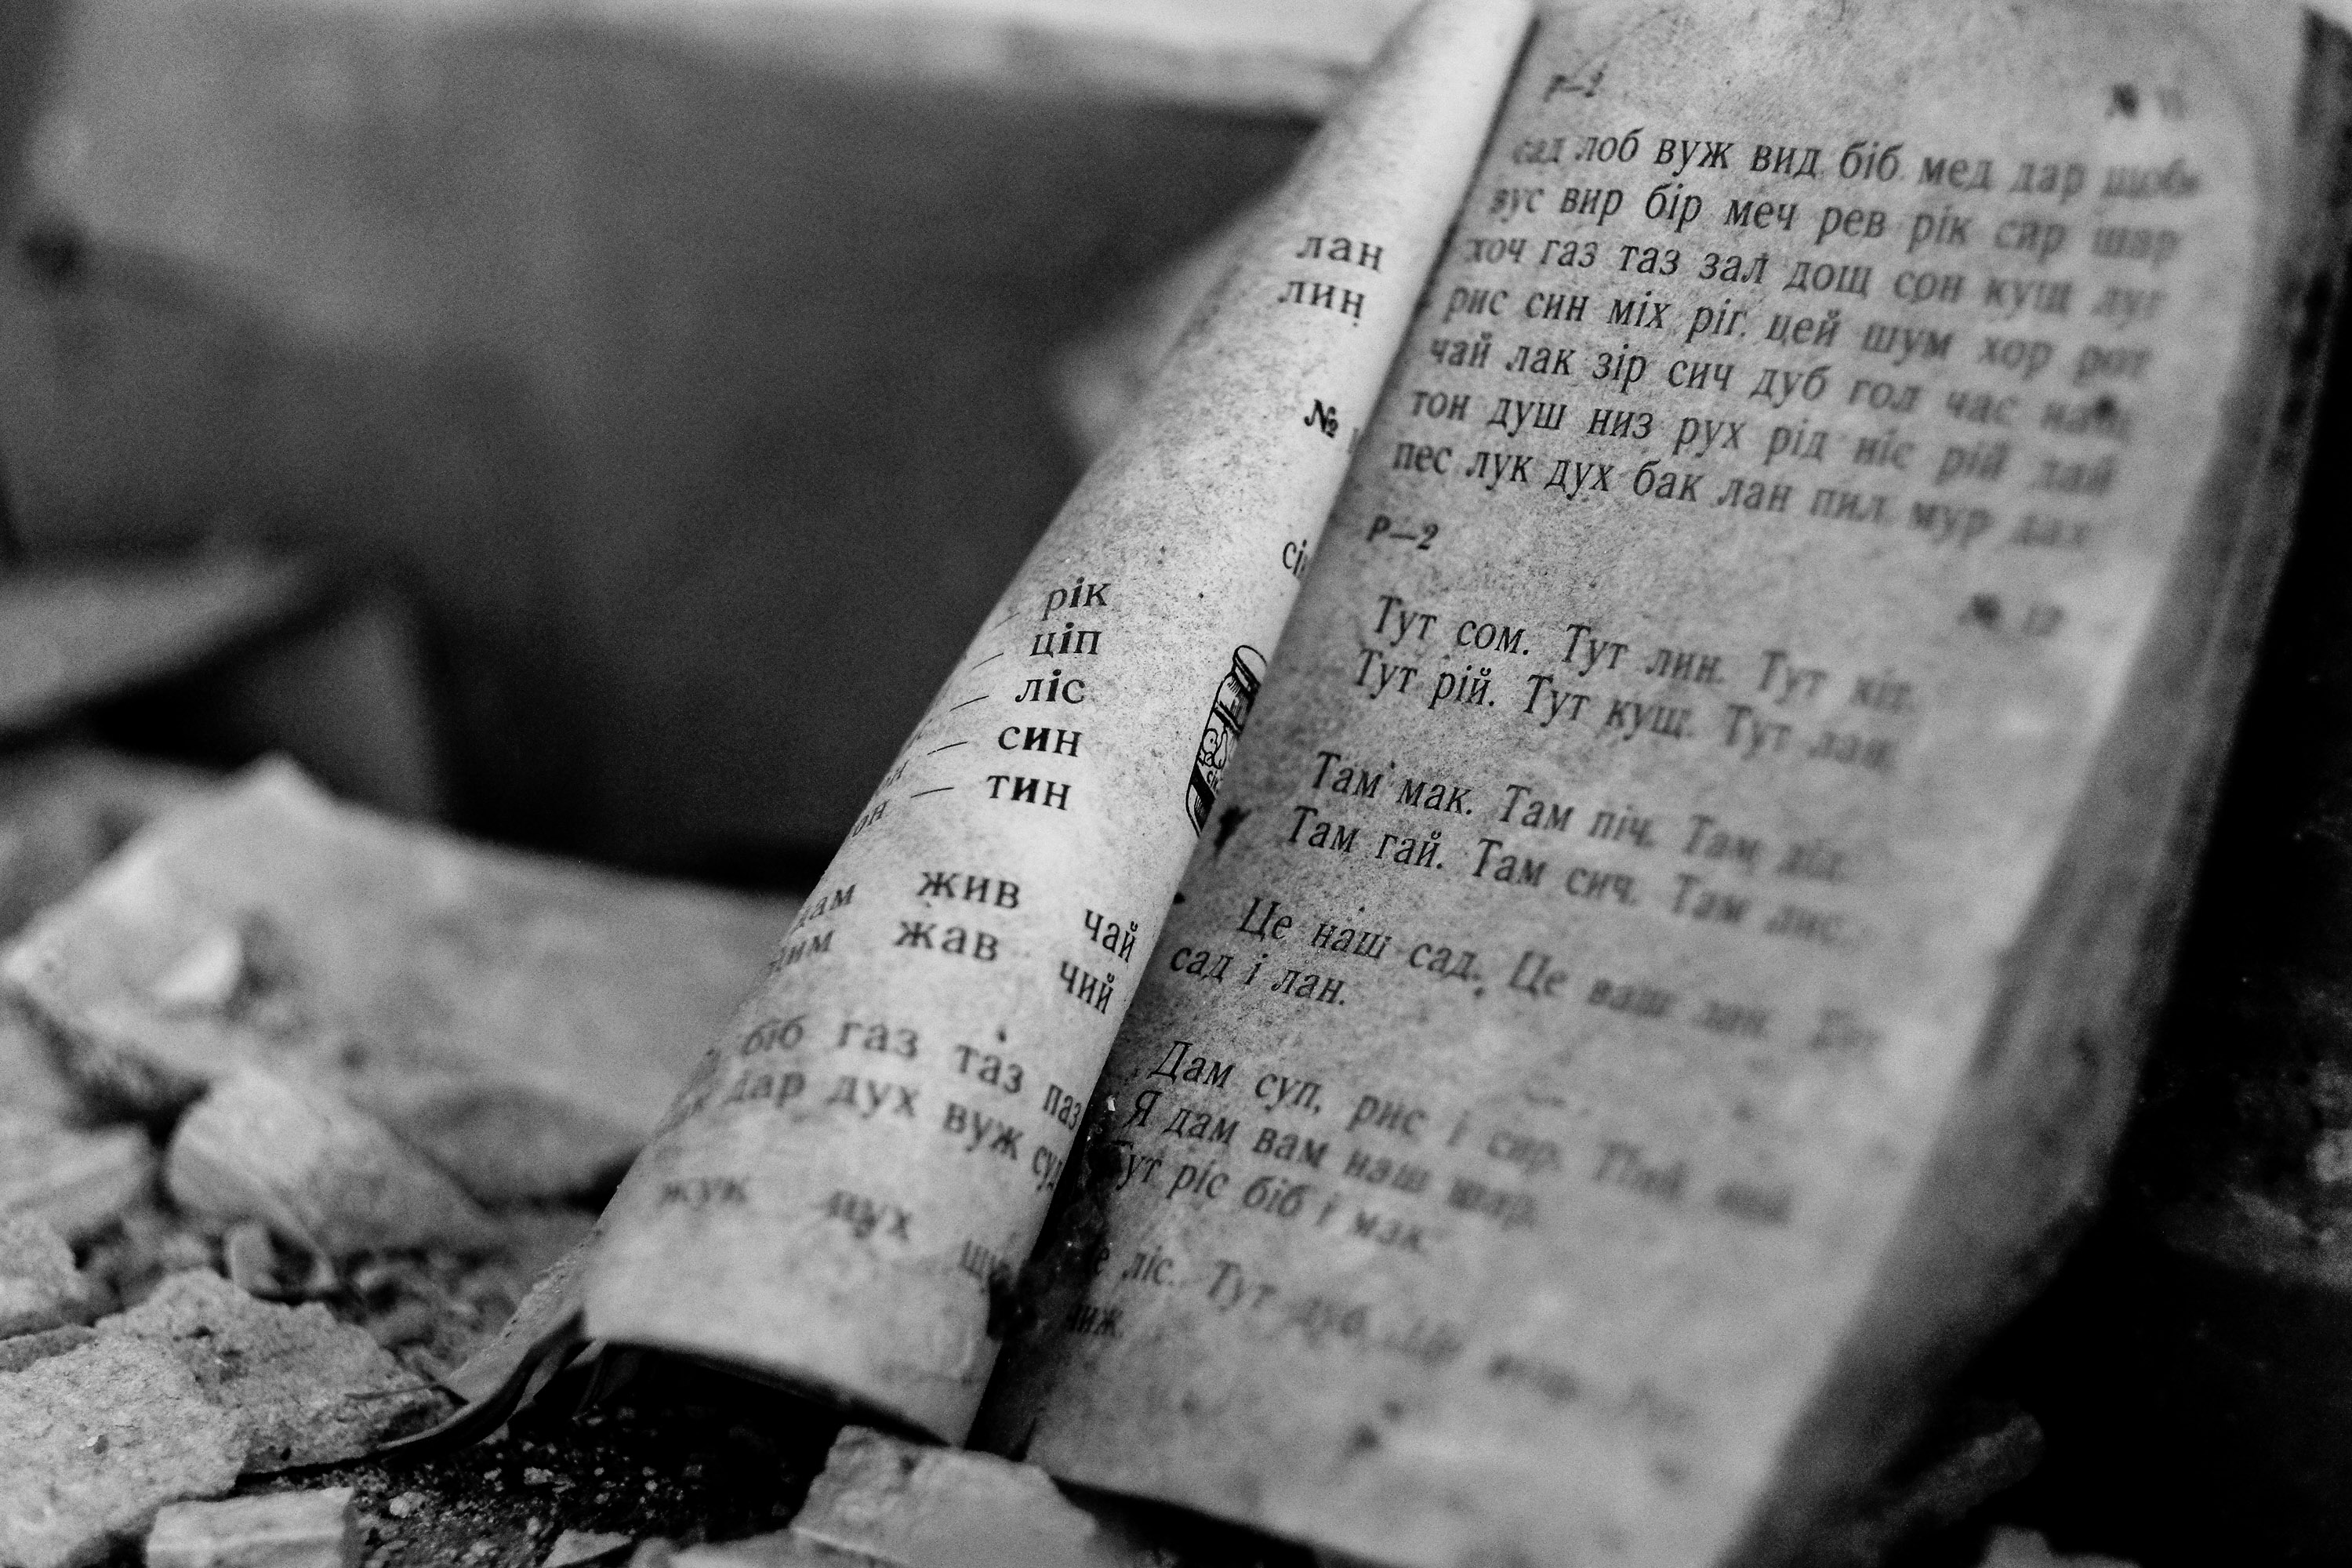 лан
лин
№
рік
ціп
ліс
син
тин
жив чай
жав чий
біб газ таз паз
дар дух вуж
жук
Р—2
сад лоб вуж вид біб мед дар
вус вир бір меч рев рік сир шар
хоч газ таз зал дощ сон кущ луг
рис син міх ріг цей шум хор рот
чай лак зір сич дуб гол час наш
тон душ низ рух рід ніс рій лай
пес лук дух бак лан пил мур дах
Р—2
№ 12
Тут сом. Тут лин. Тут кіт.
Тут рій. Тут кущ. Тут лан.
Там мак. Там піч. Там ліс.
Там гай. Там сич. Там лис.
Це наш сад. Це ваш лан.
сад і лан.
Дам суп, рис і сир.
Я дам вам наш шар.
Тут ріс біб і мак.
ліс. Тут дуб.
чиж.